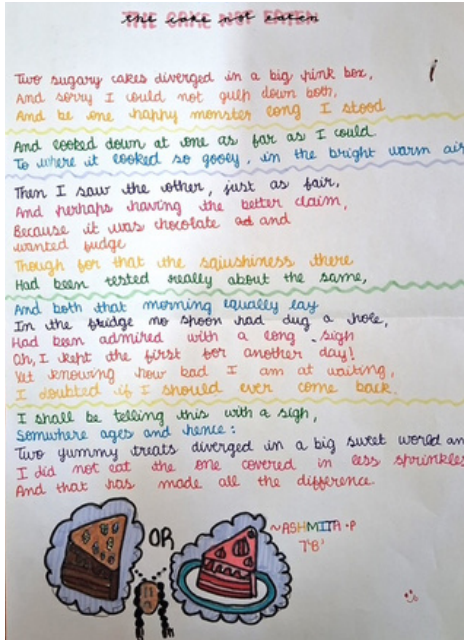 THE CAKE NOT EATEN
Two sugary cakes diverged in a big pink box,
And sorry I could not gulp down both,
And be one happy monster long I stood
And looked down at one as far as I could
To where it looked so gooey, in the bright warm air
Then I saw the other, just as fair,
And perhaps having the better claim,
Because it was chocolate and
wanted fudge
Though for that the squishiness there
Had been tested really about the same,
And both that morning equally lay
In the fridge no spoon had dug a hole,
Had been admired with a long sigh
Oh, I kept the first for another day!
Yet knowing how bad I am at waiting,
I doubted if I should ever come back.
I shall be telling this with a sigh,
Somwhere ages and hence:
Two yummy treats diverged in a big sweet world an
I did not eat the one covered in less sprinkles
And that has made all the difference.
OR
~ASHMITA .P
7'B'